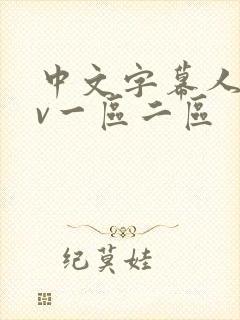 中文字幕人
v一區二區
纪莫娃